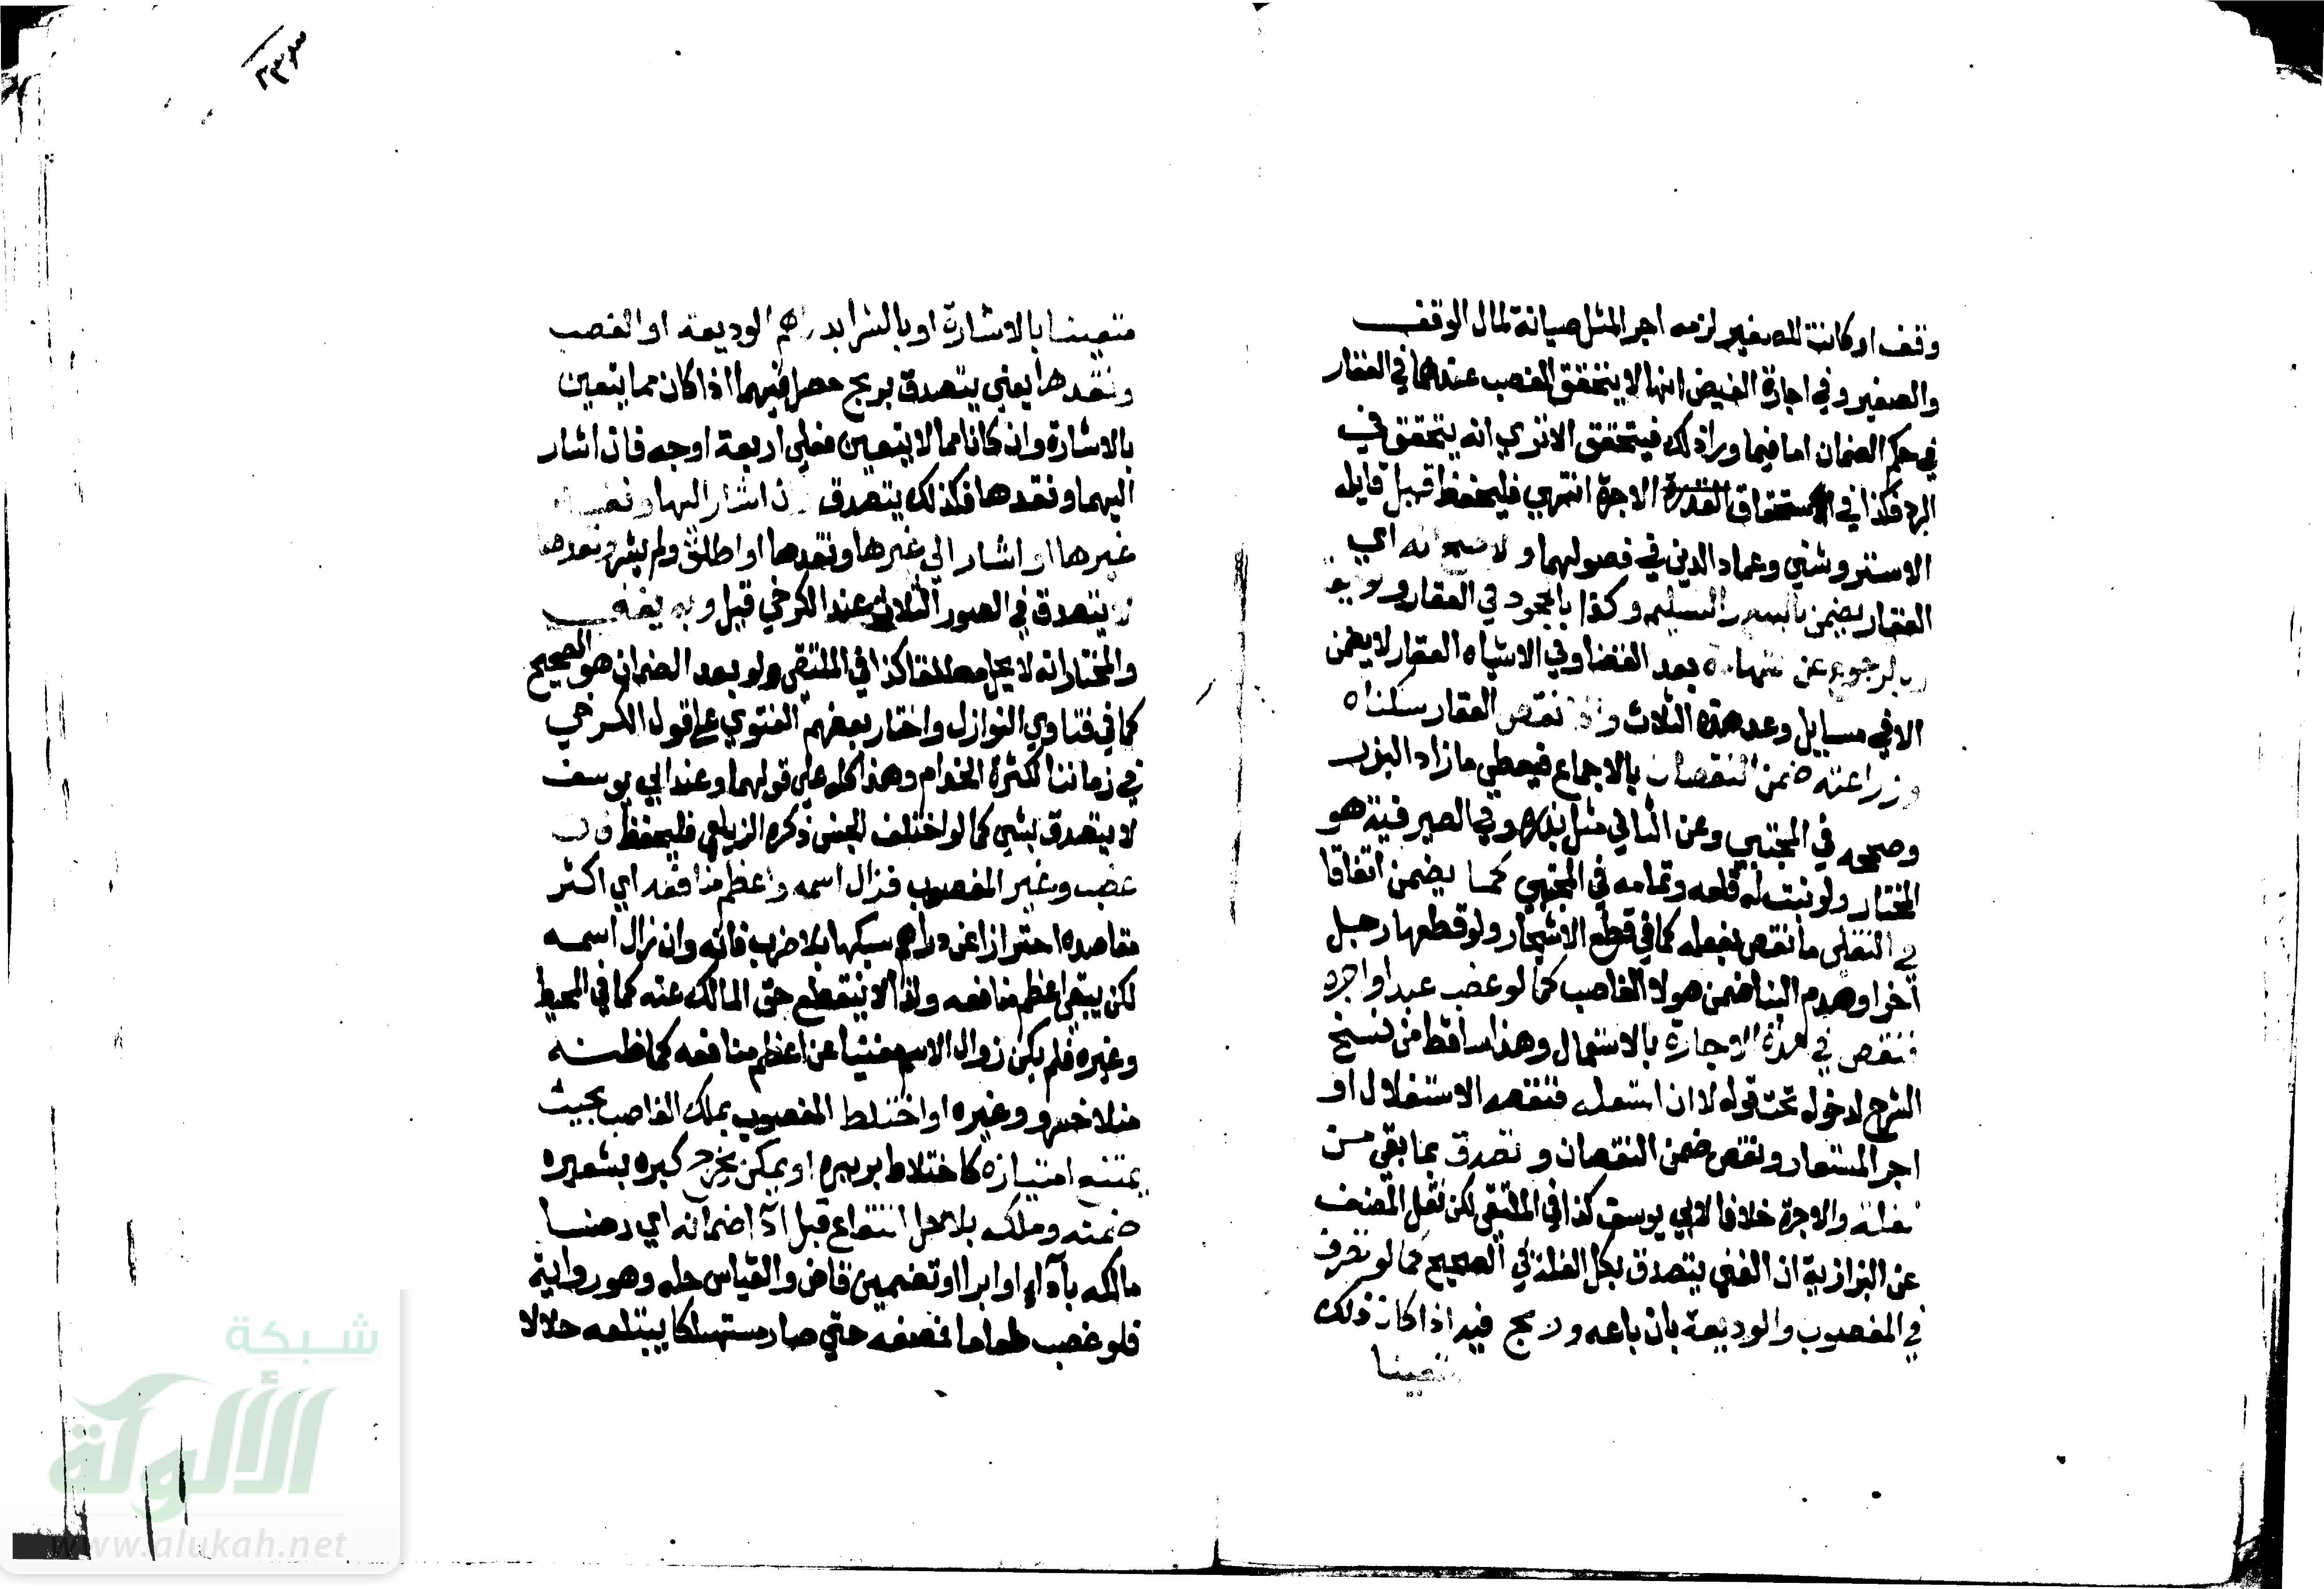 وقف او كانت للصغير لزمه اجر المثل صيانة لمال الوقف
والصغير وفي اجارة الفيض انما لا يتحقق الغصب عندهما في العقار
في حكم الضمان اما فيما وراذلك فيتحقق الاتري انه يتحقق في
الرد فكذا في استحقاق الاجرة انتهي فليحفظ قيل قايله
الاستروشني وعماد الدين في فصوليهما والاصح انه اي
العقار يضمن بالبيع والتسليم وكذا بالجحود في العقار وديعة
وبالرجوع عن الشهادة بعد القضا وفي الاشباه العقار لا يضمن
الا في مسايل وعد هذه الثلاث واذا نقص العقار بسكناه
وزراعته ضمن النقصان بالاجماع فيعطي ما زاد البزر
وصححه في المجتبي وعن الثاني مثل بذره وفي الصيرفية هو
المختار ولو نبت له قلعه وتمامه في المجتبي كما يضمن اتفاقا
في النقلي ما نقص بفعله كما في قطع الاشجار ولو قطعها رجل
آخر او هدم البنا ضمن هو لا الغاصب كما لو غصب عبدا واجره
فنقص في هذه الاجارة بالاستعمال وهذا ساقط من نسخ
الشرح لدخوله تحت قوله لا ان استعمله فنقصه الاستغلال او
اجر المستعار ونقص ضمن النقصان وتصدق بما بقي من
الغلة والاجرة خلافا لابي يوسف كذا في الملتقي لكن نقل المصنف
عن البزازية ان الغني يتصدق بكل الغلة في الصحيح كما لو تصرف
في المغصوب والوديعة بان باعه وربح فيه اذا كان ذلك
متعينا
متعينا بالاشارة او بالشرا بدراهم الوديعة او الغصب
ونقدها يعني يتصدق بربح حصل فيهما اذا كان مما يتعين
بالاشارة وان كانا مما لا يتعين فعلي اربعة اوجه فان اشار
اليهما ونقدها فكذلك يتصدق وان اشار اليها ونقد
غيرها او اشار الي غيرها ونقدها او اطلق ولم يشر ونقدها
لا يتصدق في الصور الثلاث عند الكرخي قيل وبه يفتي
والمختار انه لا يحل مطلقا كذا في الملتقي ولو بعد الضمان هو الصحيح
كما في فتاوي النوازل واختار بعضهم الفتوي علي قول الكرخي
في زماننا لكثرة الحرام وهذا كله علي قولهما وعند ابي يوسف
لا يتصدق بشي كما لو اختلف الجنس ذكره الزيلعي فليحفظ فان
غصب وغير المغصوب فزال اسمه واعظم منافعه اي اكثر
مقاصده احترازا عن دراهم سبكها بلا ضرب فانه وان زال اسمه
لكن يبقي اعظم منافعه ولذا لا ينقطع حق المالك عنه كما في المحيط
وغيره فلم يكن زوال الاسم مغنيا عن اعظم منافعه كما ظنه
منلا خسرو وغيره او اختلط المغصوب بملك الغاصب بحيث
يمتنع امتيازه كاختلاط بره ببره او يمكن بحرج كبره بشعيره
ضمنه وملكه بلا حل انتفاع قبل ادا ضمانه اي رضا
مالكه بأداء او ابرا او تضمين قاض والقياس حله وهو رواية
فلو غصب طعاما فمضغه حتي صار مستهلكا يبتلعه حلالا